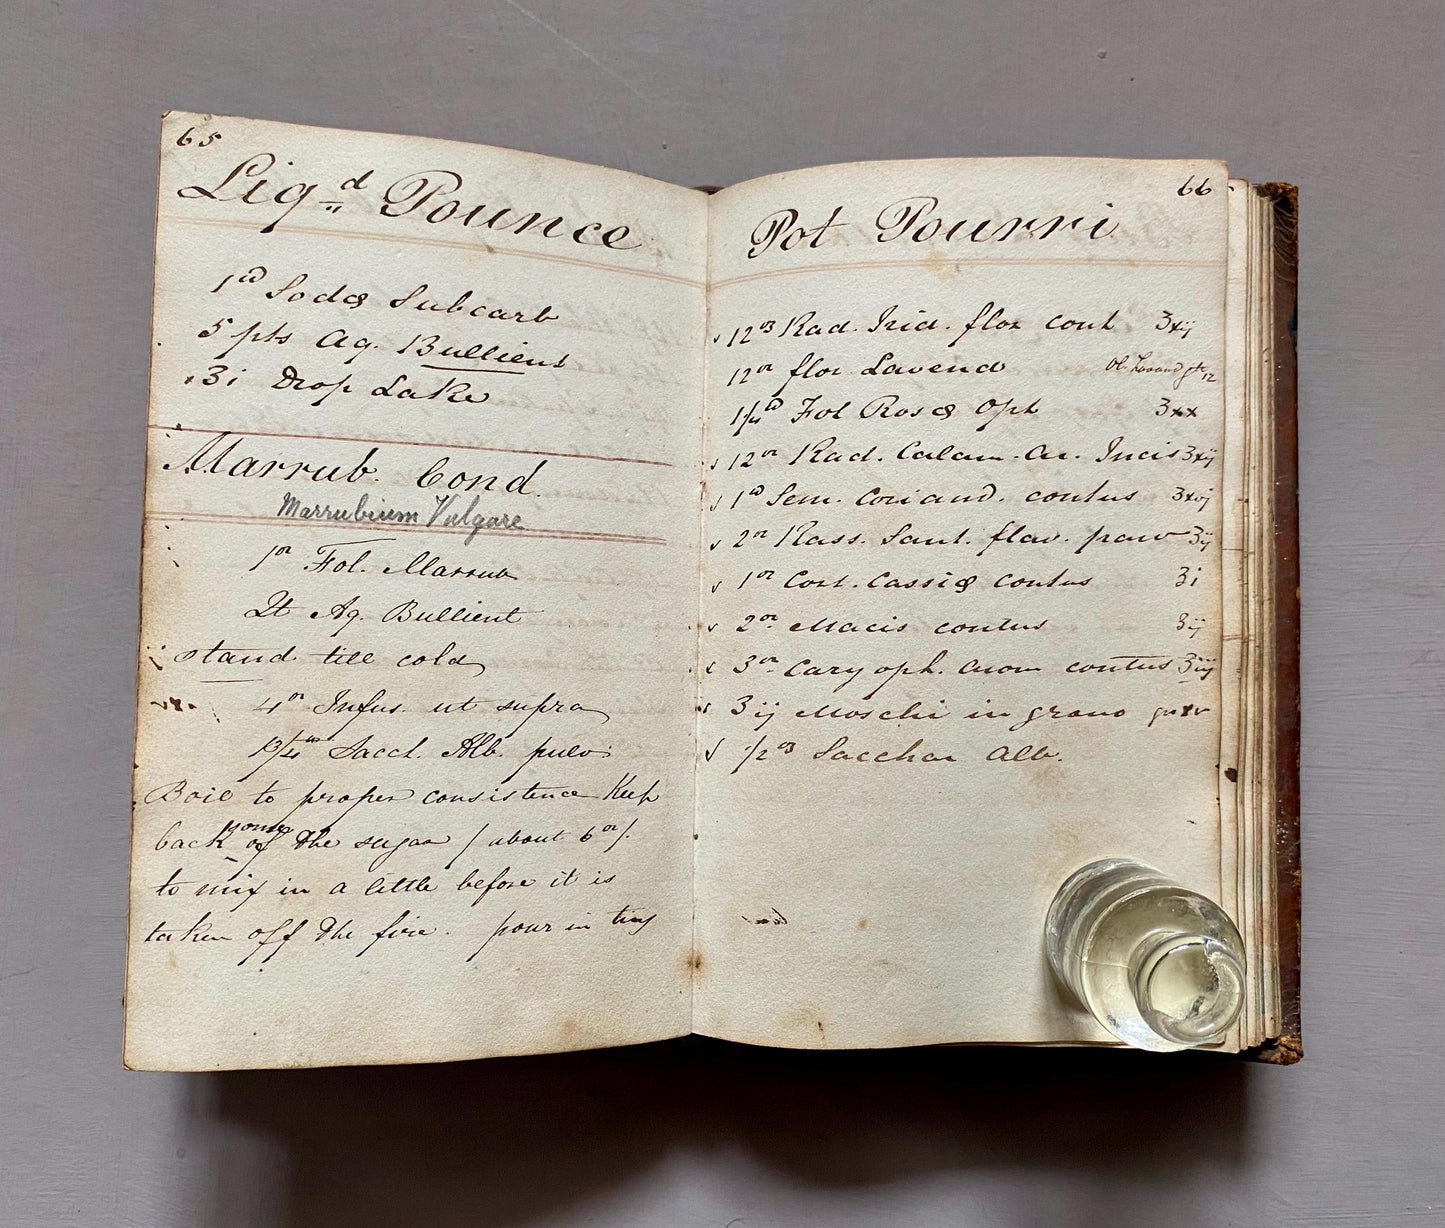 65
Liq.d Pounce
1 lb Sodæ Subcarb
5 pts Aq. Bulliens
ʒi Drop Lake
Marrub. Cond.
Marrubium Vulgare
1 oz Fol. Marrub
Aq. Bullient
stand till cold
4 oz Infus. ut supra
Sacch. Alb. pulv
Boil to proper consistence Keep
back some of the sugar / about 6 oz /
to mix in a little before it is
taken off the fire. pour in tins
66
Pot Pourri
12 oz Rad. Irid. flor cont ʒxij
12 oz flor Lavend Ol. Lavand gtt 12
1/4 lb Fol Rosæ Opt ʒxx
12 oz Rad. Calam. Ar. Incis ʒxij
1 lb Sem. Coriand. contus ʒxvj
2 oz Rass. Sant. flav. parv ʒij
1 oz Cort. Cassiæ contus ʒi
2 oz Macis contus ʒij
3 oz Caryoph. Arom contus ʒiij
ʒij Moschi in grano gr xv
1/2 oz Sacchar Alb.